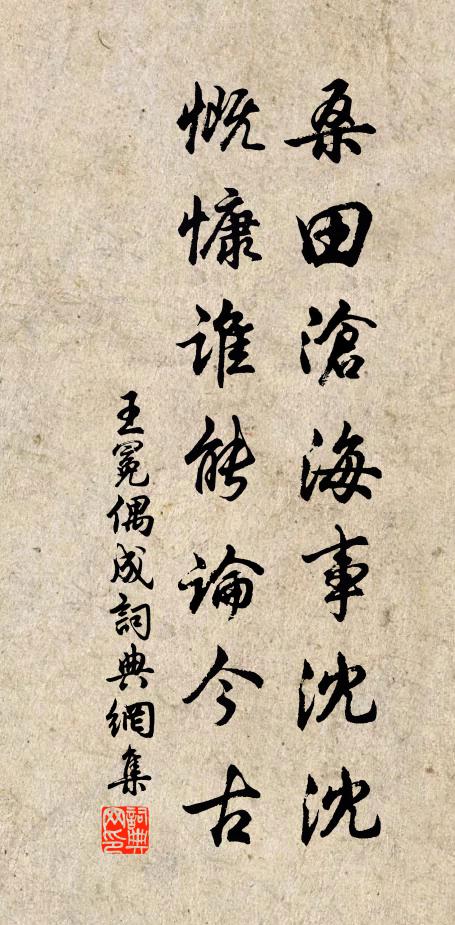 桑田滄海事沈沈
慨慷誰能論今古
王冕偶成詞典網集
詞典網印